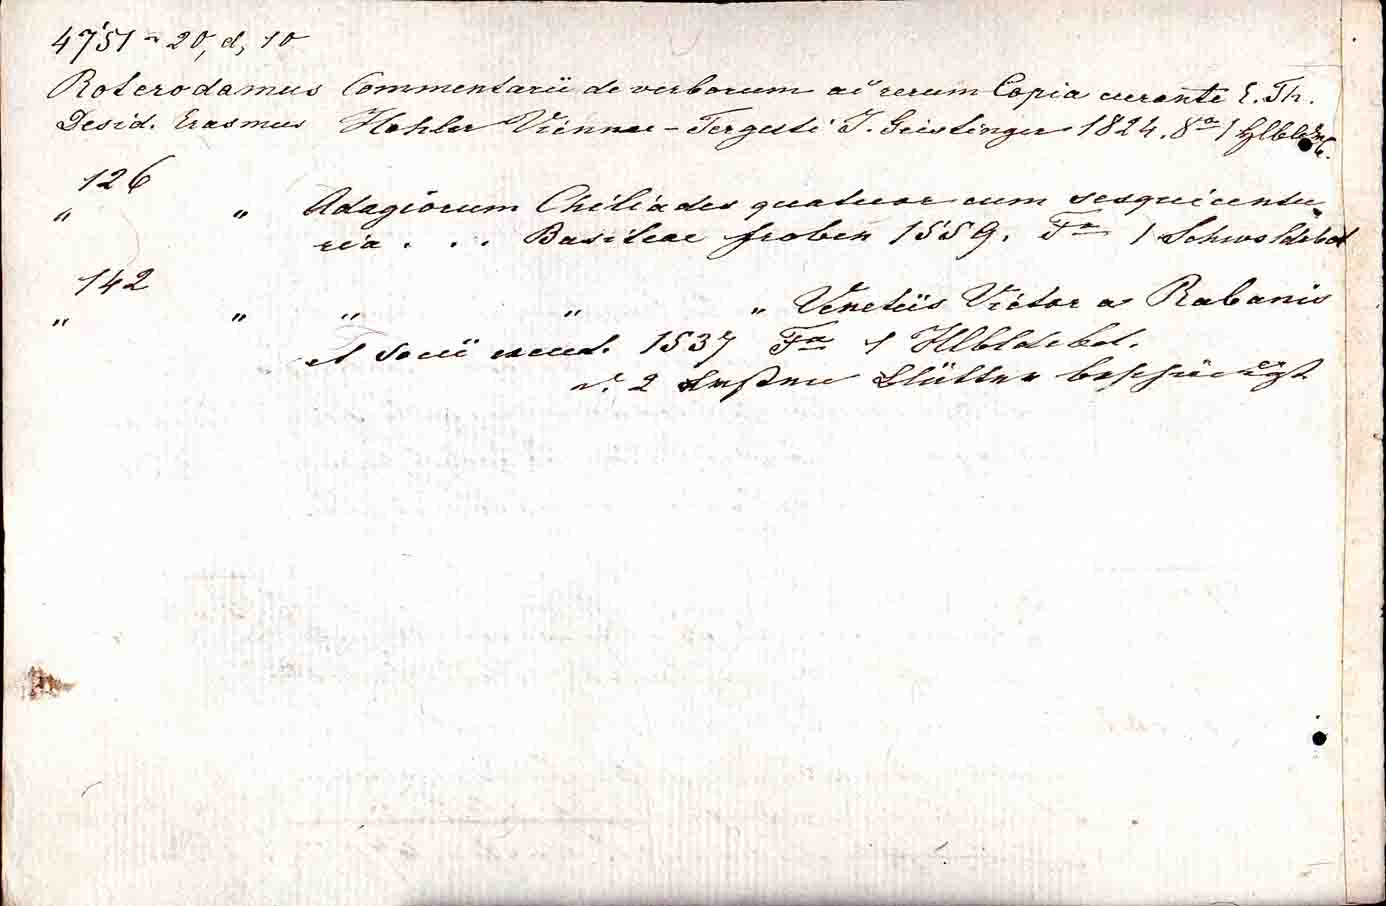 4751 - 20, d, 10
Roterodamus Commentarii de verborum ac rerum Copia curante E. Th.
Desid. Erasmus Hohler Viennae - Tergesti J. Geistinger 1824. 8º 1 Hlbld
126
" " Adagiorum Chiliades quatuor cum sesquicentu„
ria . . . Basileae froben 1559. Fº 1 Schwsldrbd
142
" " " " " Venetiis Victor a Rabanis
et Socii excud. 1537 Fº 1 Hlbldrbd.
d. 2 ersten Blätter beschädigt